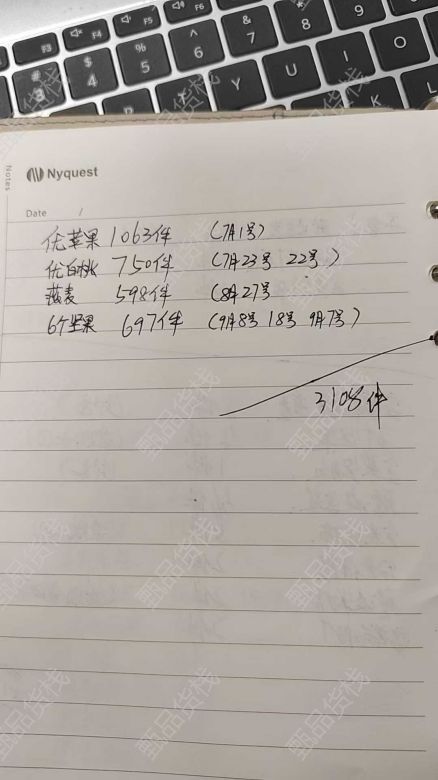 F3
F4
F5
F6
#
3
$
4
%
5
^
6
&
7
8
9
Y
U
I
O
K
L
Notes
Nyquest
Date /
优苹果 1063件 (7月1号)
优白桃 750件 (7月23号 22号)
燕麦 598件 (8月27号
6个坚果 697件 (9月8号 18号 9月7号)
3108件
甄品货栈